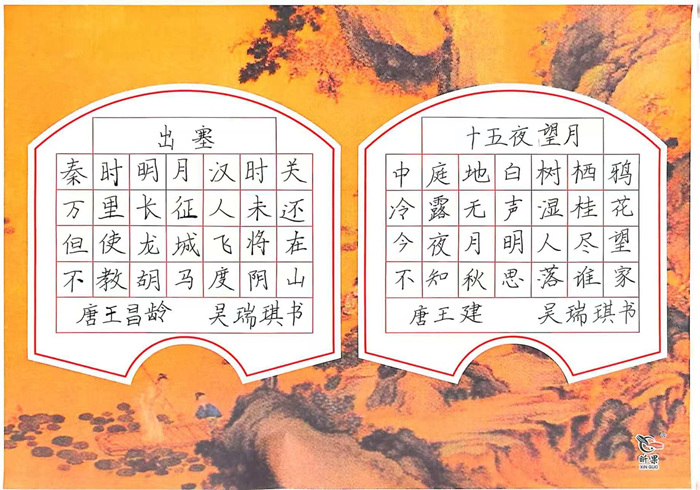 出塞
秦时明月汉时关
万里长征人未还
但使龙城飞将在
不教胡马度阴山
唐王昌龄 吴瑞琪书
十五夜望月
中庭地白树栖鸦
冷露无声湿桂花
今夜月明人尽望
不知秋思落谁家
唐王建 吴瑞琪书
昕果
XIN GUO